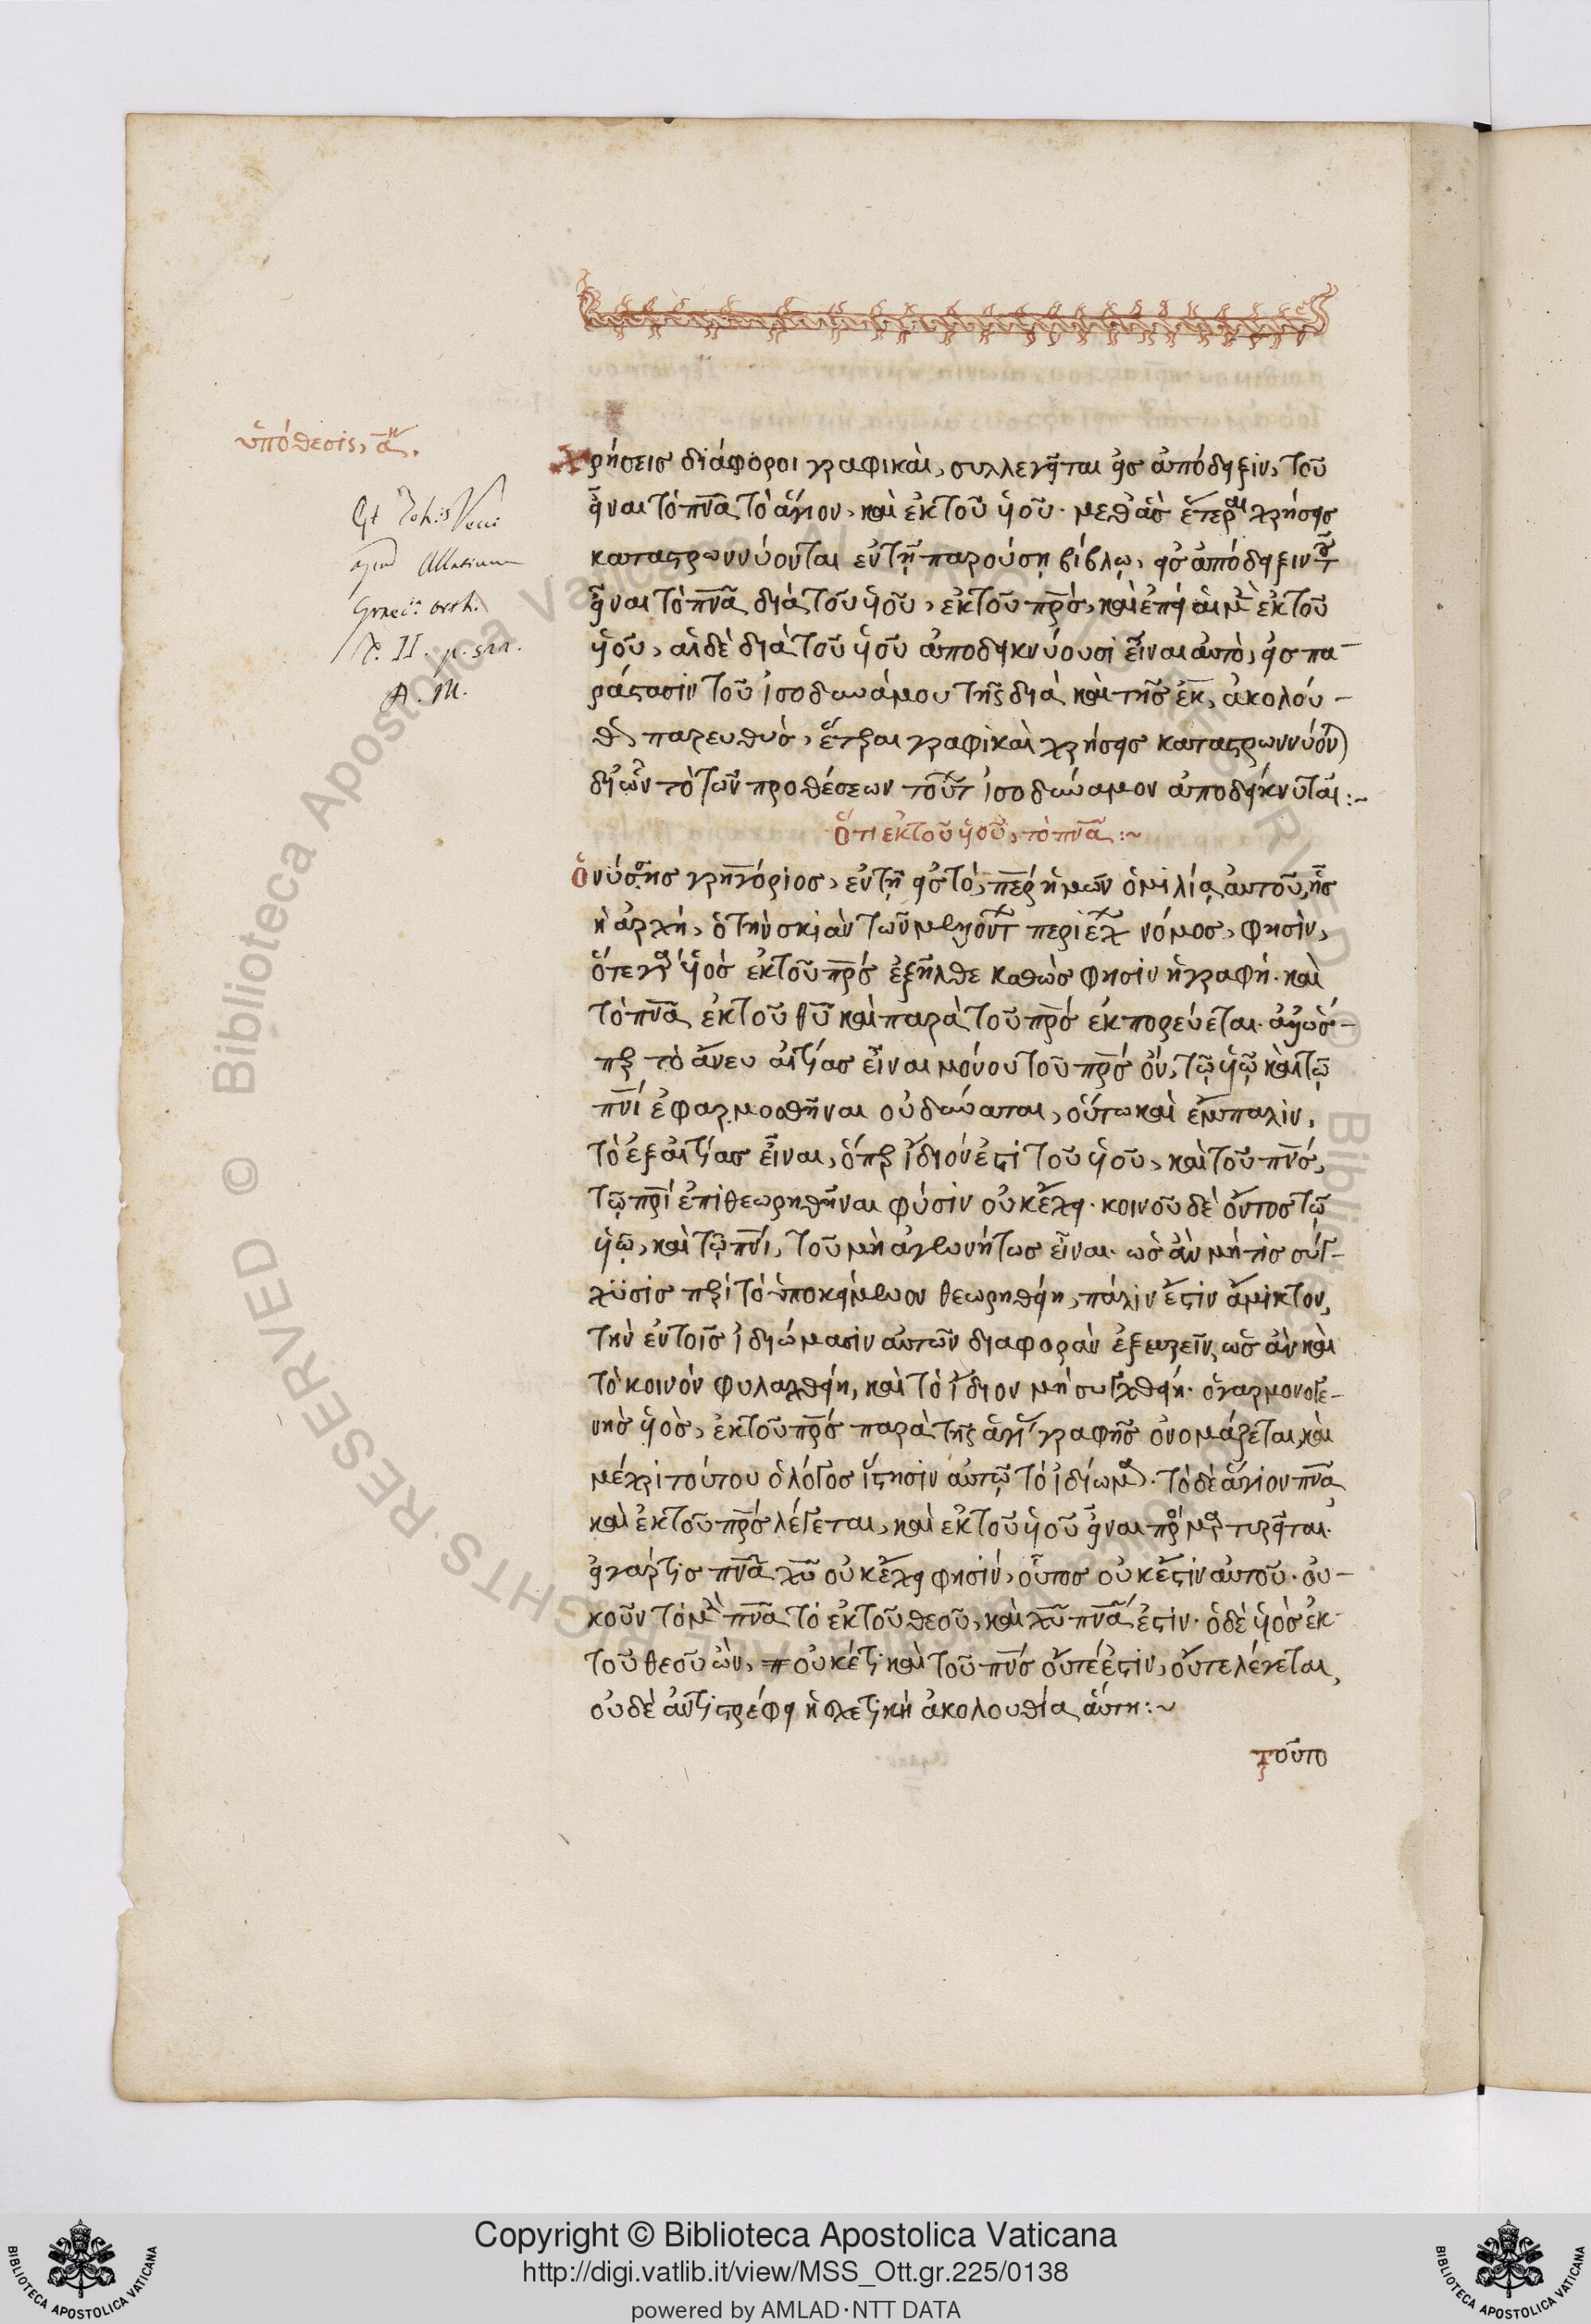 ὑπόθεσις, α̅η.
Gt Johis Vecci
apud Allatium
Graec: orth.
T. II. p.
A. M.
Χρήσεις διάφοροι γραφικαὶ, συλλεγεῖται εἰς ἀπόδειξιν, τοῦ
εἶναι τὸ πν̅α τὸ ἅγιον, καὶ ἐκ τοῦ υἱοῦ· μεθ' ἃς ἕτεραι χρήσεις
καταστρωννύονται ἐν τῇ παρούσῃ βίβλῳ, εἰς ἀπόδειξιν τοῦ
εἶναι τὸ πν̅α διὰ τοῦ υἱοῦ, ἐκ τοῦ πρ̅ς, καὶ ἐπεὶ αἱ μὲν ἐκ τοῦ
υἱοῦ, αἱ δὲ διὰ τοῦ υἱοῦ ἀποδεικνύουσι εἶναι αὐτὸ, εἰς πα-
ράστασιν τοῦ ἰσοδυνάμου τῆς διὰ καὶ τῆς ἐκ, ἀκολού-
θως παρευθὺς, ἕτεραι γραφικαὶ χρήσεις καταστρωννύον)
δι' ὧν τὸ τῶν προθέσεων τούτ ἰσοδύναμον ἀποδείκνυται:~
ὅτι ἐκ τοῦ υἱοῦ, τὸ πν̅α:~
Ὁ νύσσης γρηγόριος, ἐν τῇ εἰς τὸ, πε̅ρ ἡμῶν ὁμιλίᾳ αὐτοῦ, ἧς
ἡ ἀρχὴ, ὁ τὴν σκιὰν τῶν μελλόντ περιέχ νόμος, φησὶν,
ὅτε γὰρ υἱὸς ἐκ τοῦ πρ̅ς ἐξῆλθε καθὼς φησὶν ἡ γραφή. καὶ
τὸ πν̅α ἐκ τοῦ θυ̅ καὶ παρὰ τοῦ πρ̅ς ἐκπορεύεται. ἀλλ' ὡς-
περ τὸ ἄνευ αἰτίας εἶναι μόνου τοῦ πρ̅ς ὂν, τῷ υἱῷ καὶ τῷ
πν̅ι ἐφαρμοσθῆναι οὐ δύναται, οὕτω καὶ ἔμπαλιν,
τὸ ἐξ αἰτίας εἶναι, ὅπερ ἴδιόν ἐστὶ τοῦ υἱοῦ, καὶ τοῦ πν̅ς,
τῷ πρ̅ι ἐπιθεωρηθῆναι φύσιν οὐκ ἔχει. κοινοῦ δὲ ὄντος τῷ
υἱῷ, καὶ τῷ πν̅ι, τοῦ μὴ ἀγεννήτως εἶναι. ὡς ἂν μή τις σύγ-
χυσις περὶ τὸ ὑποκείμενον θεωρηθείη, πάλιν ἔστιν ἄμικτον,
τὴν ἐν τοῖς ἰδιώμασιν αὐτῶν διαφορὰν ἐξευρεῖν, ὡς ἂν καὶ
τὸ κοινὸν φυλαχθείη, καὶ τὸ ἴδιον μὴ συγχθείη. ὁ γὰρ μονογε-
νὴς υἱὸς, ἐκ τοῦ πρ̅ς παρὰ τῆς ἁγί γραφῆς ὀνομάζεται, καὶ
μέχρι τούτου ὁ λόγος ἵστησιν αὐτῷ τὸ ἰδίωμα. τὸ δὲ ἅγιον πν̅α
καὶ ἐκ τοῦ πρ̅ς λέγεται, καὶ ἐκ τοῦ υἱοῦ εἶναι προσμαρτυρεῖται.
εἰ γάρ τις πν̅α χυ̅ οὐκ ἔχει φησὶν, οὗτος οὐκ ἔστιν αὐτοῦ. οὐ-
κοῦν τὸ μὲν πν̅α τὸ ἐκ τοῦ θεοῦ, καὶ χυ̅ πν̅α ἐστίν. ὁ δὲ υἱὸς ἐκ
τοῦ θεοῦ ὢν, οὐκέτι καὶ τοῦ πν̅ς οὔτε ἐστὶν, οὔτε λέγεται,
οὐδὲ ἀντιστρέφει ἡ σχετικὴ ἀκολουθία αὕτη:~
τοῦτο
Copyright © Biblioteca Apostolica Vaticana
http://digi.vatlib.it/view/MSS_Ott.gr.225/0138
powered by AMLAD·NTT DATA
BIBLIOTECA APOSTOLICA VATICANA
BIBLIOTECA APOSTOLICA VATICANA